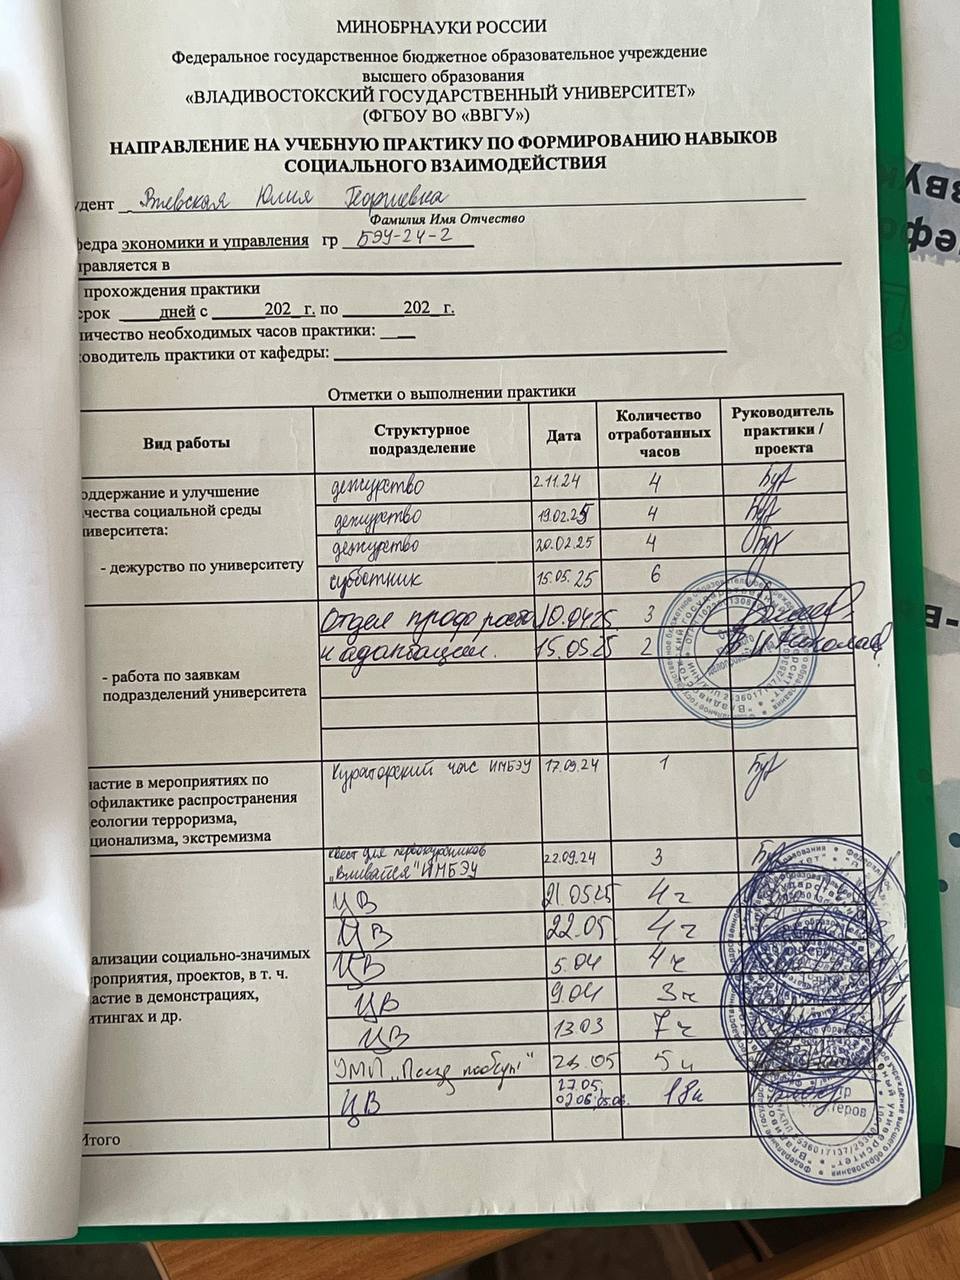 МИНОБРНАУКИ РОССИИ
Федеральное государственное бюджетное образовательное учреждение
высшего образования
«ВЛАДИВОСТОКСКИЙ ГОСУДАРСТВЕННЫЙ УНИВЕРСИТЕТ»
(ФГБОУ ВО «ВВГУ»)
НАПРАВЛЕНИЕ НА УЧЕБНУЮ ПРАКТИКУ ПО ФОРМИРОВАНИЮ НАВЫКОВ
СОЦИАЛЬНОГО ВЗАИМОДЕЙСТВИЯ
удент Юлия Георгиевна
Фамилия Имя Отчество
федра экономики и управления гр БЭУ-24-2
правляется в
прохождения практики
срок дней с 202 г. по 202 г.
личество необходимых часов практики:
ководитель практики от кафедры:
Отметки о выполнении практики
Вид работы Структурное подразделение Дата Количество отработанных часов Руководитель практики / проекта
оддержание и улучшение
чества социальной среды
иверситета:
- дежурство по университету
дежурство 2.11.24 4
дежурство 19.02.25 4
дежурство 20.02.25 4
субботник 15.05.25 6
- работа по заявкам
подразделений университета
Отдел проф роста 10.04.25 3
и адаптации. 15.05.25 2
частие в мероприятиях по
офилактике распространения
еологии терроризма,
ционализма, экстремизма
Кураторский час ИМБЭУ 17.09.24 1
ализации социально-значимых
роприятия, проектов, в т. ч.
частие в демонстрациях,
итингах и др.
квест для первокурсников
„Вливайся" ИМБЭУ 22.09.24 3
ЦВ 21.05.25 4 ч
ЦВ 22.05. 4 ч
ЦВ 5.04 4 ч
ЦВ 9.04 3 ч
ЦВ 13.03 7 ч
„Поезд победы" 5 ч
ЦВ 27.05, 18 ч
Итого